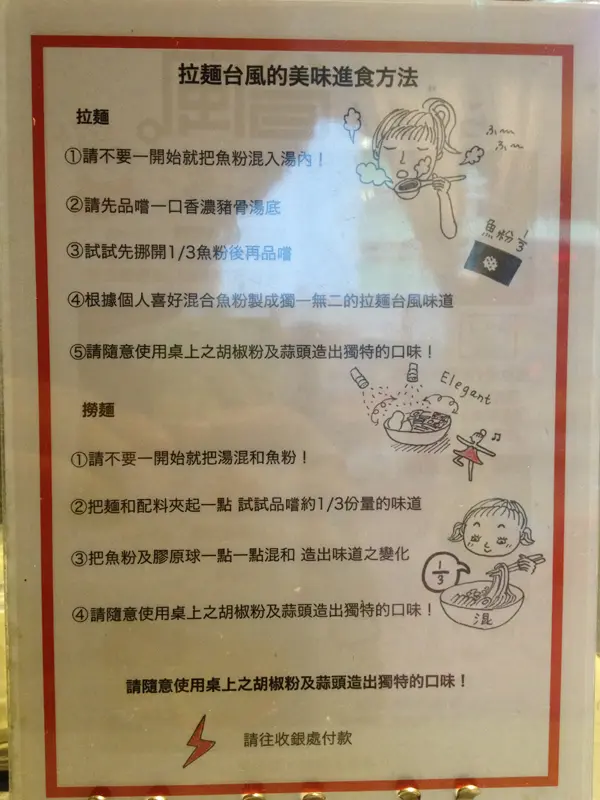 拉麵台風的美味進食方法
拉麵
①請不要一開始就把魚粉混入湯內！
ふ～
ふ～
②請先品嚐一口香濃豬骨湯底
魚粉 1/3
③試試先挪開1/3魚粉後再品嚐
④根據個人喜好混合魚粉製成獨一無二的拉麵台風味道
⑤請隨意使用桌上之胡椒粉及蒜頭造出獨特的口味！
Elegant
撈麵
①請不要一開始就把湯混和魚粉！
②把麵和配料夾起一點 試試品嚐約1/3份量的味道
③把魚粉及膠原球一點一點混和 造出味道之變化
1/3
④請隨意使用桌上之胡椒粉及蒜頭造出獨特的口味！
混
請隨意使用桌上之胡椒粉及蒜頭造出獨特的口味！
請往收銀處付款